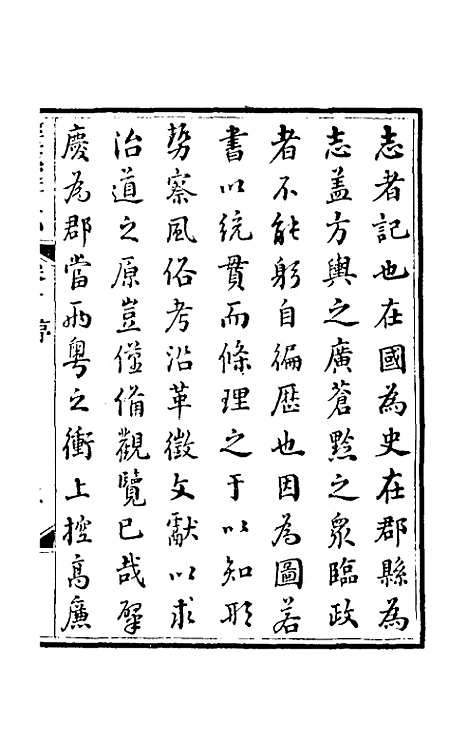 志者記也在國為史在郡縣為
志盖方輿之廣蒼黔之衆臨政
者不能躬自徧歷也因為圖若
書以統貫而條理之于以知形
勢察風俗考沿革徵文獻以求
治道之原豈僅備觀覽已哉肇
慶為郡當兩粤之衝上控高廉
序